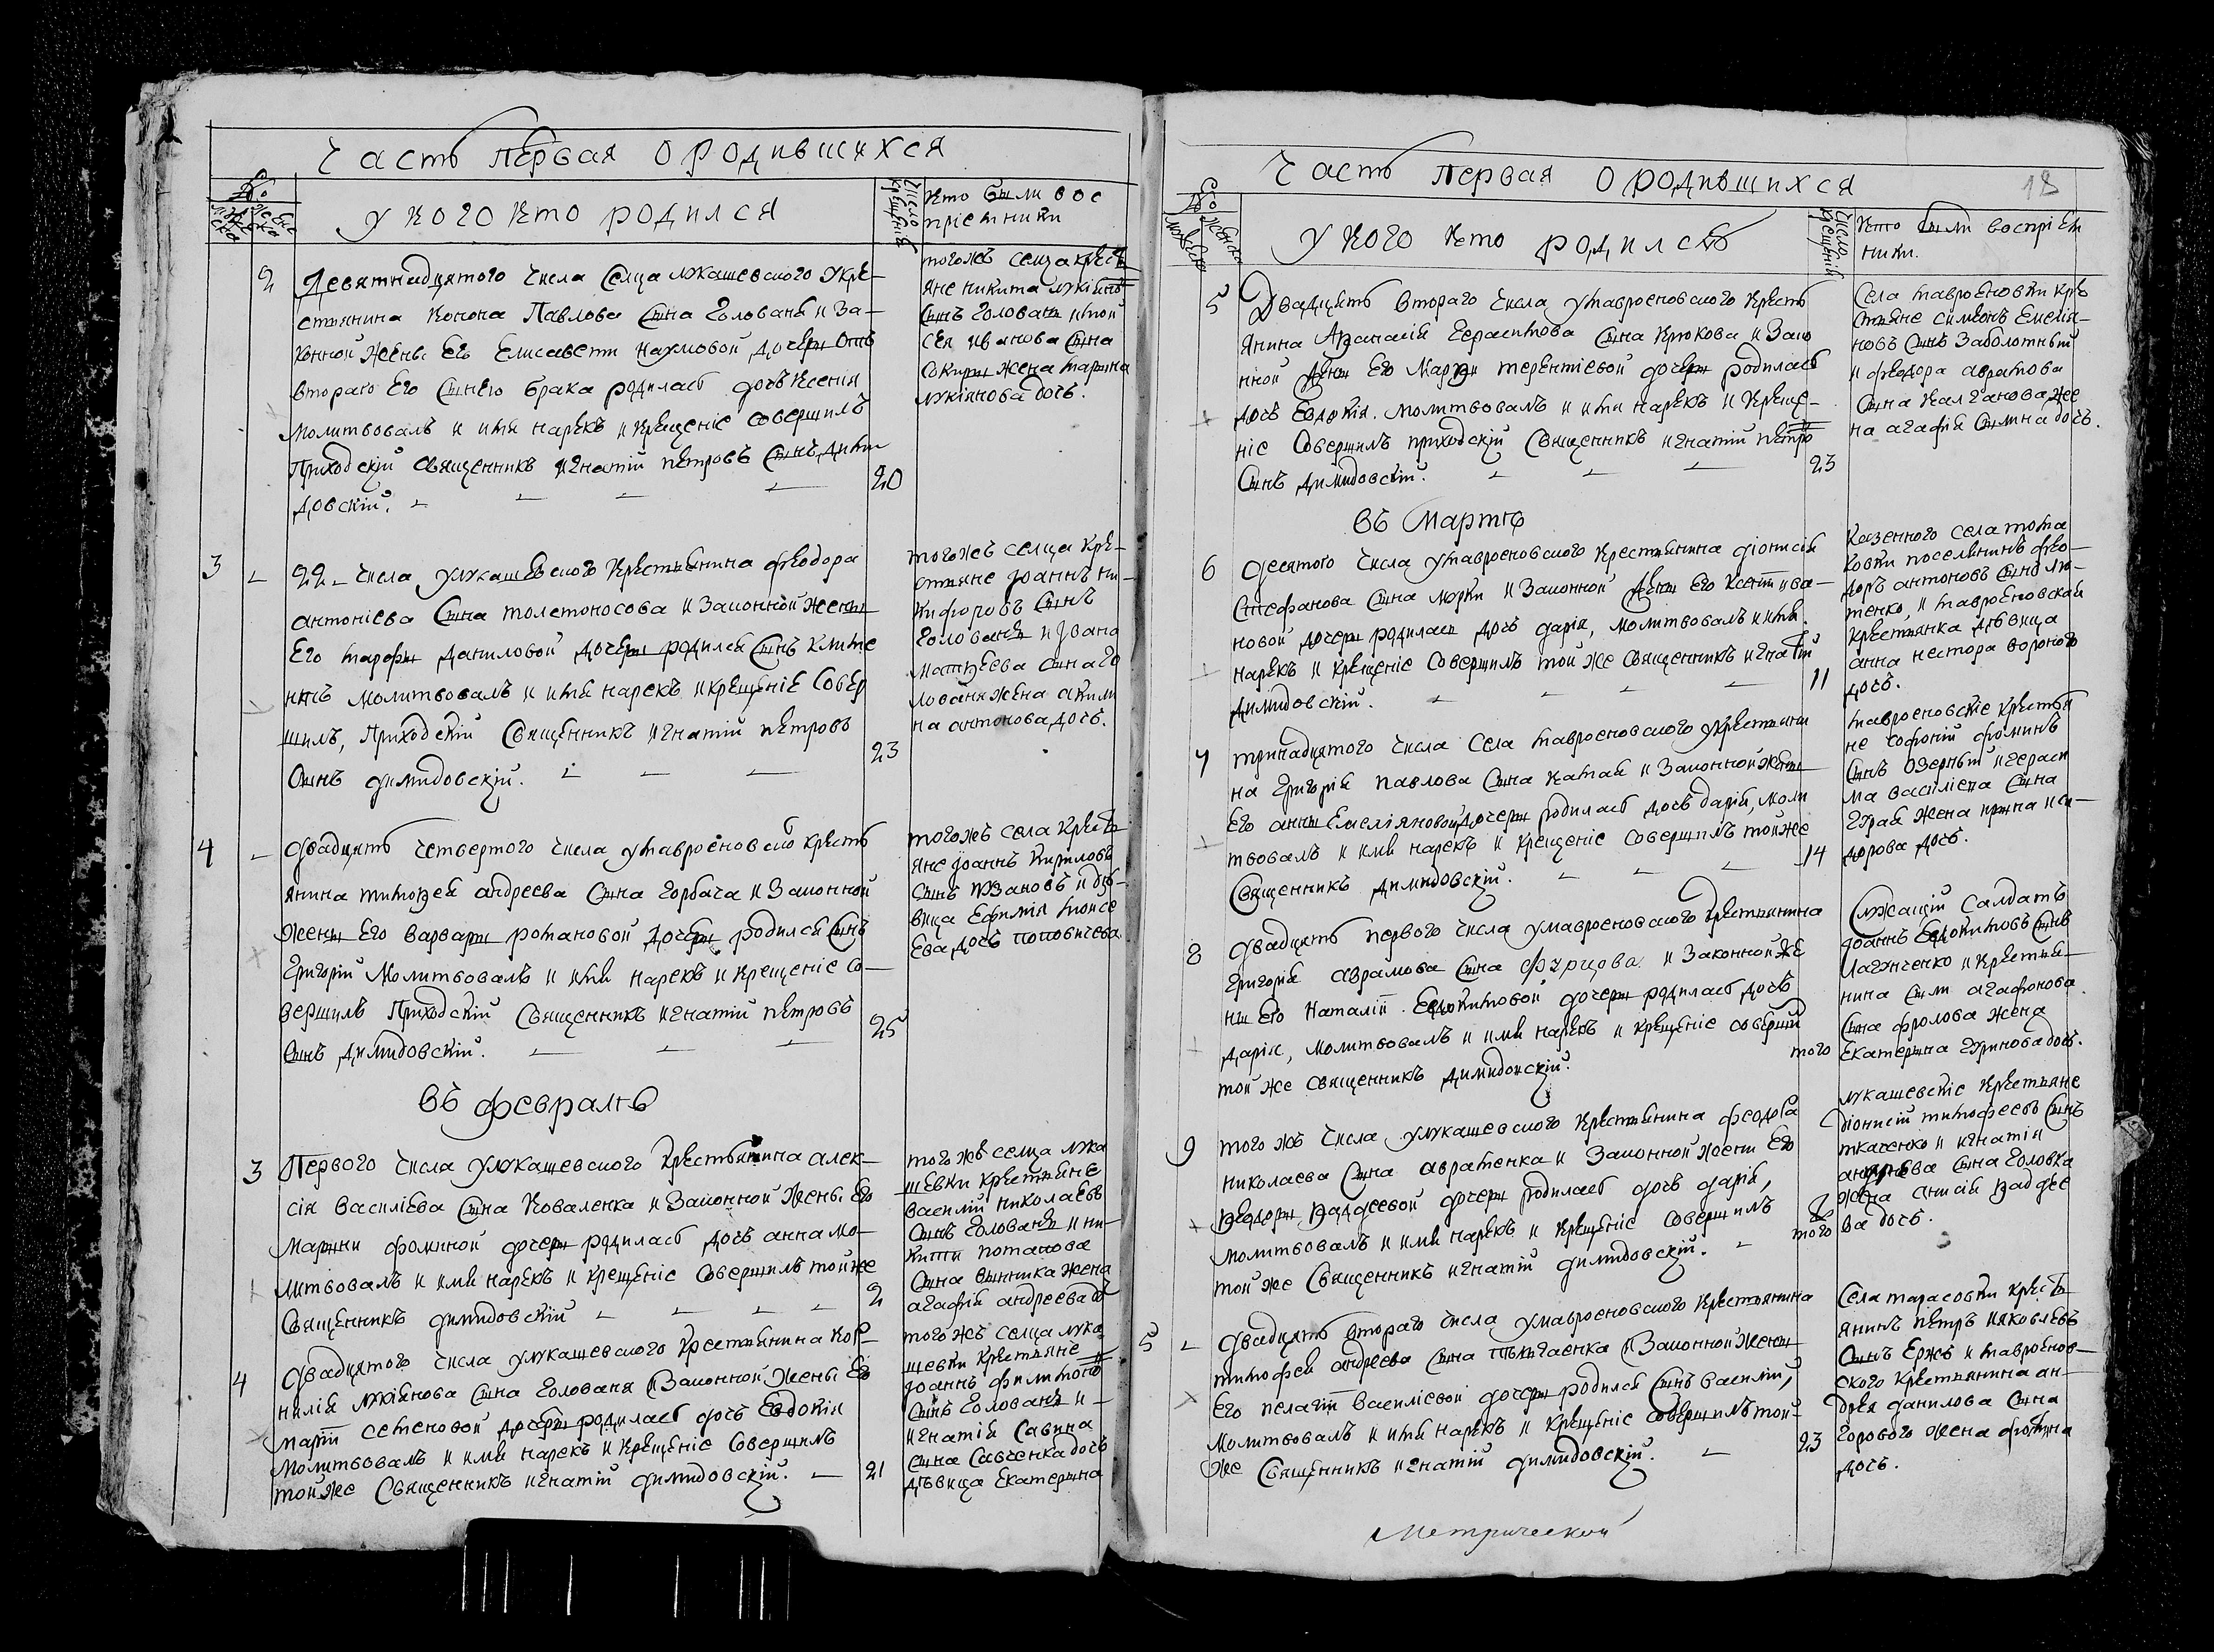 Часть первая о родившихся
Число крещенія
Кто были вос
пріемники
у кого кто родился
2
Девятнадцятого числа Селца лукашевского укре-
стьянина Конона Павлова Сына Голованя и За-
конной жены его Елисавети Наумовой дочери отъ
втораго его Сынего брака родилась дочь Ксенія
молитвовалъ и имя нарекъ и крещеніе совершилъ
Приходскій священникъ игнатій петровъ Сынъ дими
довскій.
20
тогожъ селца кресть
яне никита лукіянъ
Сынъ Головань и мой
сея иванова сына
Сокиры жена марина
лукіянова дочь.
3
22 - числа улукашевского Крестьянина феодора
антоніева Сына толстоносова и Законной жены
Его марфы Даниловой дочери родился Сынъ климе
нтъ молитвовалъ и имя нарекъ и крещеніе Совер
шилъ, Приходскій Священникъ игнатій петровъ
Сынъ димидовскій.
23
тогожъ селца кре-
стьяне Іоаннъ ни-
кифоровъ Сынъ
Головань и Івана
Матѳеева сына го
лованя жена акили
на антонова дочь.
4
двадцять четвертого числа умавроеновского кресть
янина тимоѳея андреева Сына горбача и Законной
жены Его варвары романовой дочери родился Сынъ
григорій молитвовалъ и имя нарекъ и крещеніе со-
вершилъ Приходскій Священникъ игнатій петровъ
Сынъ димидовскій.
25
тогожъ села кресть
яне Іоаннъ Кириловъ
Сынъ и дѣ-
вица Ефимія моисе
ева дочь поповичева.
въ февралѣ
3
Первого числа улукашевского крестьянина алек-
сія василіева Сына Коваленка и Законной жены Его
марины фоминой дочери родилась дочь анна мо-
литвовалъ и имя нарекъ и крещеніе Совершилъ тойже
Священникъ димидовскій
2
того жъ селца лука
шевки крестьяне
василій николаевъ
Сынъ Головань и ни-
киты потапова
Сына винника жена
агафія андреева до
4
двадцятого числа улукашевского крестьянина кор-
нилія лукіянова Сына голованя и Законной жены Его
маріи семеновой дочери родилась дочь Евдокія
молитвовалъ и имя нарекъ и крещеніе Совершилъ
тойже Священникъ игнатій димидовскій.
21
того жъ селца лука
шевки крестьяне
Іоаннъ филимоно
Сынъ Головань и
игнатія Савина
сына Савченка дочь
дѣвица Екатерина
Часть первая о родившихся
18
у кого кто родился
Число крещеній
Кто были воспріем
ники.
5
Двадцять втораго числа умавроеновского кресть
янина Аѳанасія герасимова сына крюкова и Зако
нной жены Его Марѳи терентіевой дочери родилась
дочь Евдокія. молитвовалъ и имя нарекъ и креще-
ніе Совершилъ приходскій Священникъ игнатій петро
Сынъ димидовскій.
23
Села мавроеновки кре
стьяне симеонъ емелія-
новъ Сынъ Заболотный
и феодора аврамова
Сына Калганова же
на агафія Силина дочь.
въ Мартѣ
6
десятого числа умавроеновского крестьянина діонисія
Стефанова Сына мирки и Законной жены Его Ксеніи ива-
новой дочери родилась дочь дарія, молитвовалъ и имя
нарекъ и крещеніе Совершилъ той же Священникъ игнатій
димидовскій.
11
Казенного села тома
ковки поселянинъ фео-
доръ антоновъ Сынъ лю-
тенко, и мавроеновская
крестьянка дѣвица
анна нестора вороного
дочь.
7
тринадцятого числа Села мавроеновского укрестьяни
на григорія павлова Сына камая и Законной жены
Его анны Емеліяновой дочери родилась дочь дарія, моли
твовалъ и имя нарекъ и крещеніе Совершилъ тойже
Священникъ димидовскій.
14
мавроеновскіе крестья
не софоній фоминъ
Сынъ озерный и гераси
ма василіева Сына
гурая жена ирина иси-
дорова дочь.
8
двадцять первого числа умавроеновского крестьянина
григорія аврамова Сына Фурцова и Законной же
ны Его Наталіи Евдокимовой дочери родилась дочь
дарія, молитвовалъ и имя нарекъ и крещеніе соверши
той же священникъ димидовскій.
того
Служащій Салдатъ
Іоаннъ Евдокимовъ Сынъ
Лагунченко и крестья-
нина Силы агафонова
Сына фролова жена
Екатерина гуринова дочь.
9
того жъ числа улукашевского крестьянина феодора
николаева Сына авраменка и Законной жены Его
ѳеодоры ѳаддеевой дочери родилась дочь дарія,
молитвовалъ и имя нарекъ и крещеніе Совершилъ
той же Священникъ игнатій димидовскій.
того
лукашевскіе крестьяне
діонисій тимофеевъ Сынъ
ткаченко и игнатія
андреева Сына головка
жена анисія ѳаддее
ва дочь.
5
двадцять втораго числа умавроеновского крестьянина
тимофея андреева Сына и Законной жены
Его пелагіи василіевой дочери родился Сынъ василій,
молитвовалъ и имя нарекъ и крещеніе совершилъ той-
же Священникъ игнатій димидовскій.
23
Села тарасовки кресть
янинъ петръ іяковлевъ
Сынъ Ержъ и мавроенов-
ского крестьянина ан-
дрея данилова Сына
горового жена фотина
дочь.
Метрической